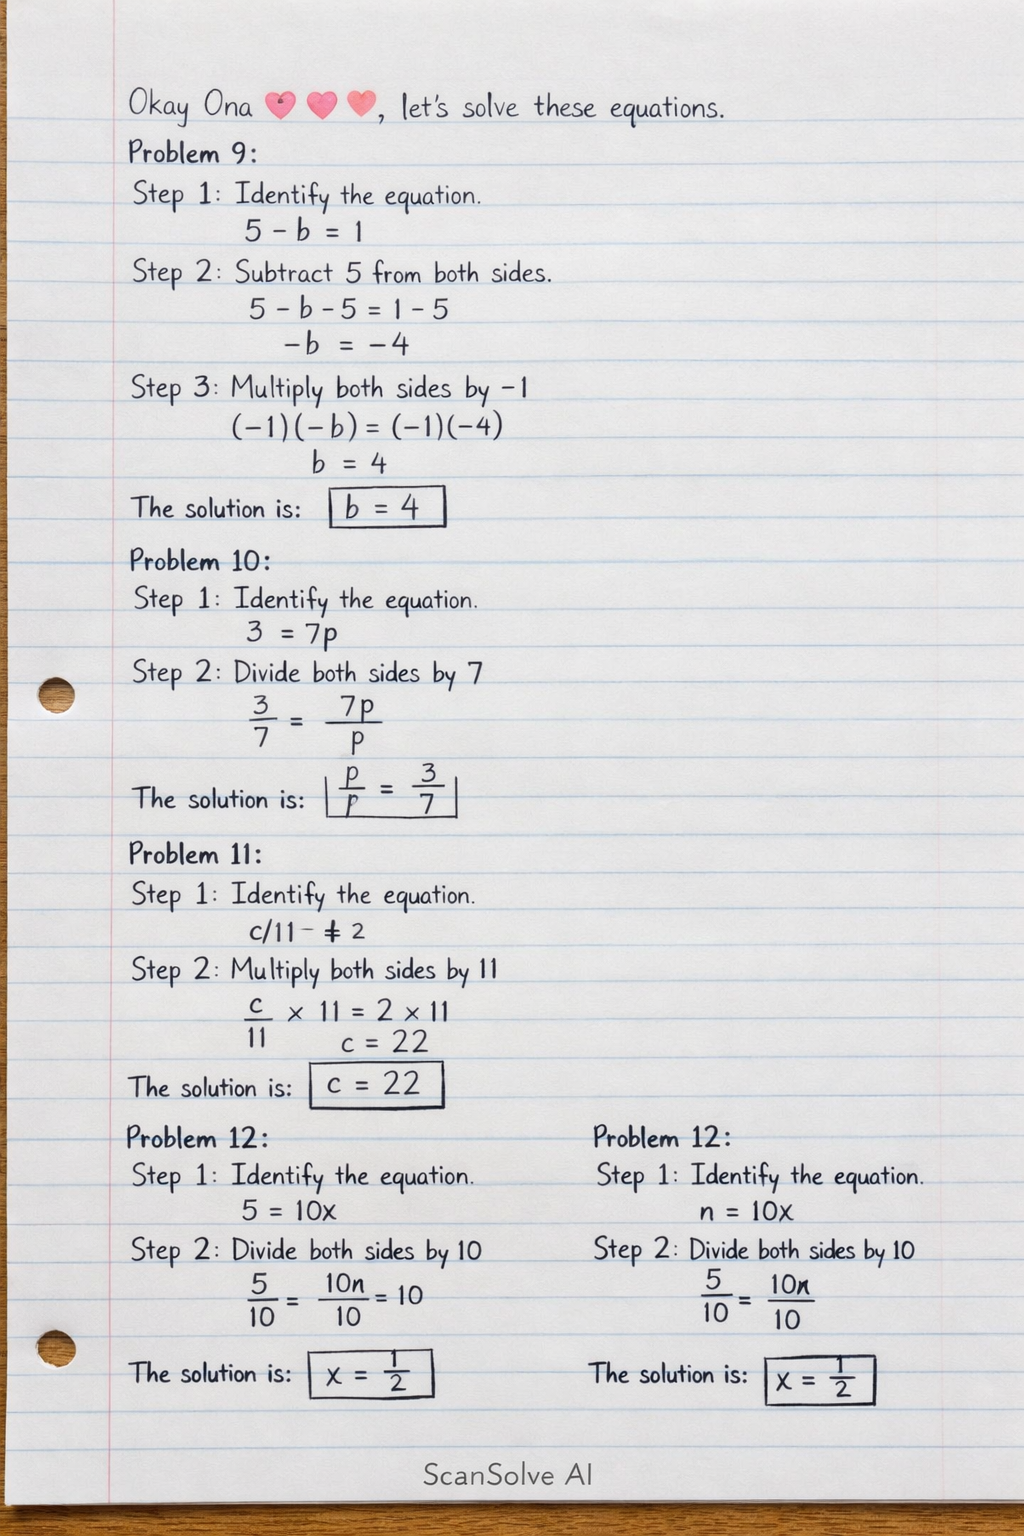 Okay Ona 💗💗💗, let's solve these equations.
Problem 9:
Step 1: Identify the equation.
5 - b = 1
Step 2: Subtract 5 from both sides.
5 - b - 5 = 1 - 5
-b = -4
Step 3: Multiply both sides by -1
(-1)(-b) = (-1)(-4)
b = 4
The solution is: b = 4
Problem 10:
Step 1: Identify the equation.
3 = 7p
Step 2: Divide both sides by 7
3/7 = 7p/p
The solution is: p/p = 3/7
Problem 11:
Step 1: Identify the equation.
c/11 - ǂ 2
Step 2: Multiply both sides by 11
c/11 × 11 = 2 × 11
c = 22
The solution is: c = 22
Problem 12:
Step 1: Identify the equation.
5 = 10x
Step 2: Divide both sides by 10
5/10 = 10n/10 = 10
The solution is: x = 1/2
Problem 12:
Step 1: Identify the equation.
n = 10x
Step 2: Divide both sides by 10
5/10 = 10n/10
The solution is: x = 1/2
ScanSolve AI